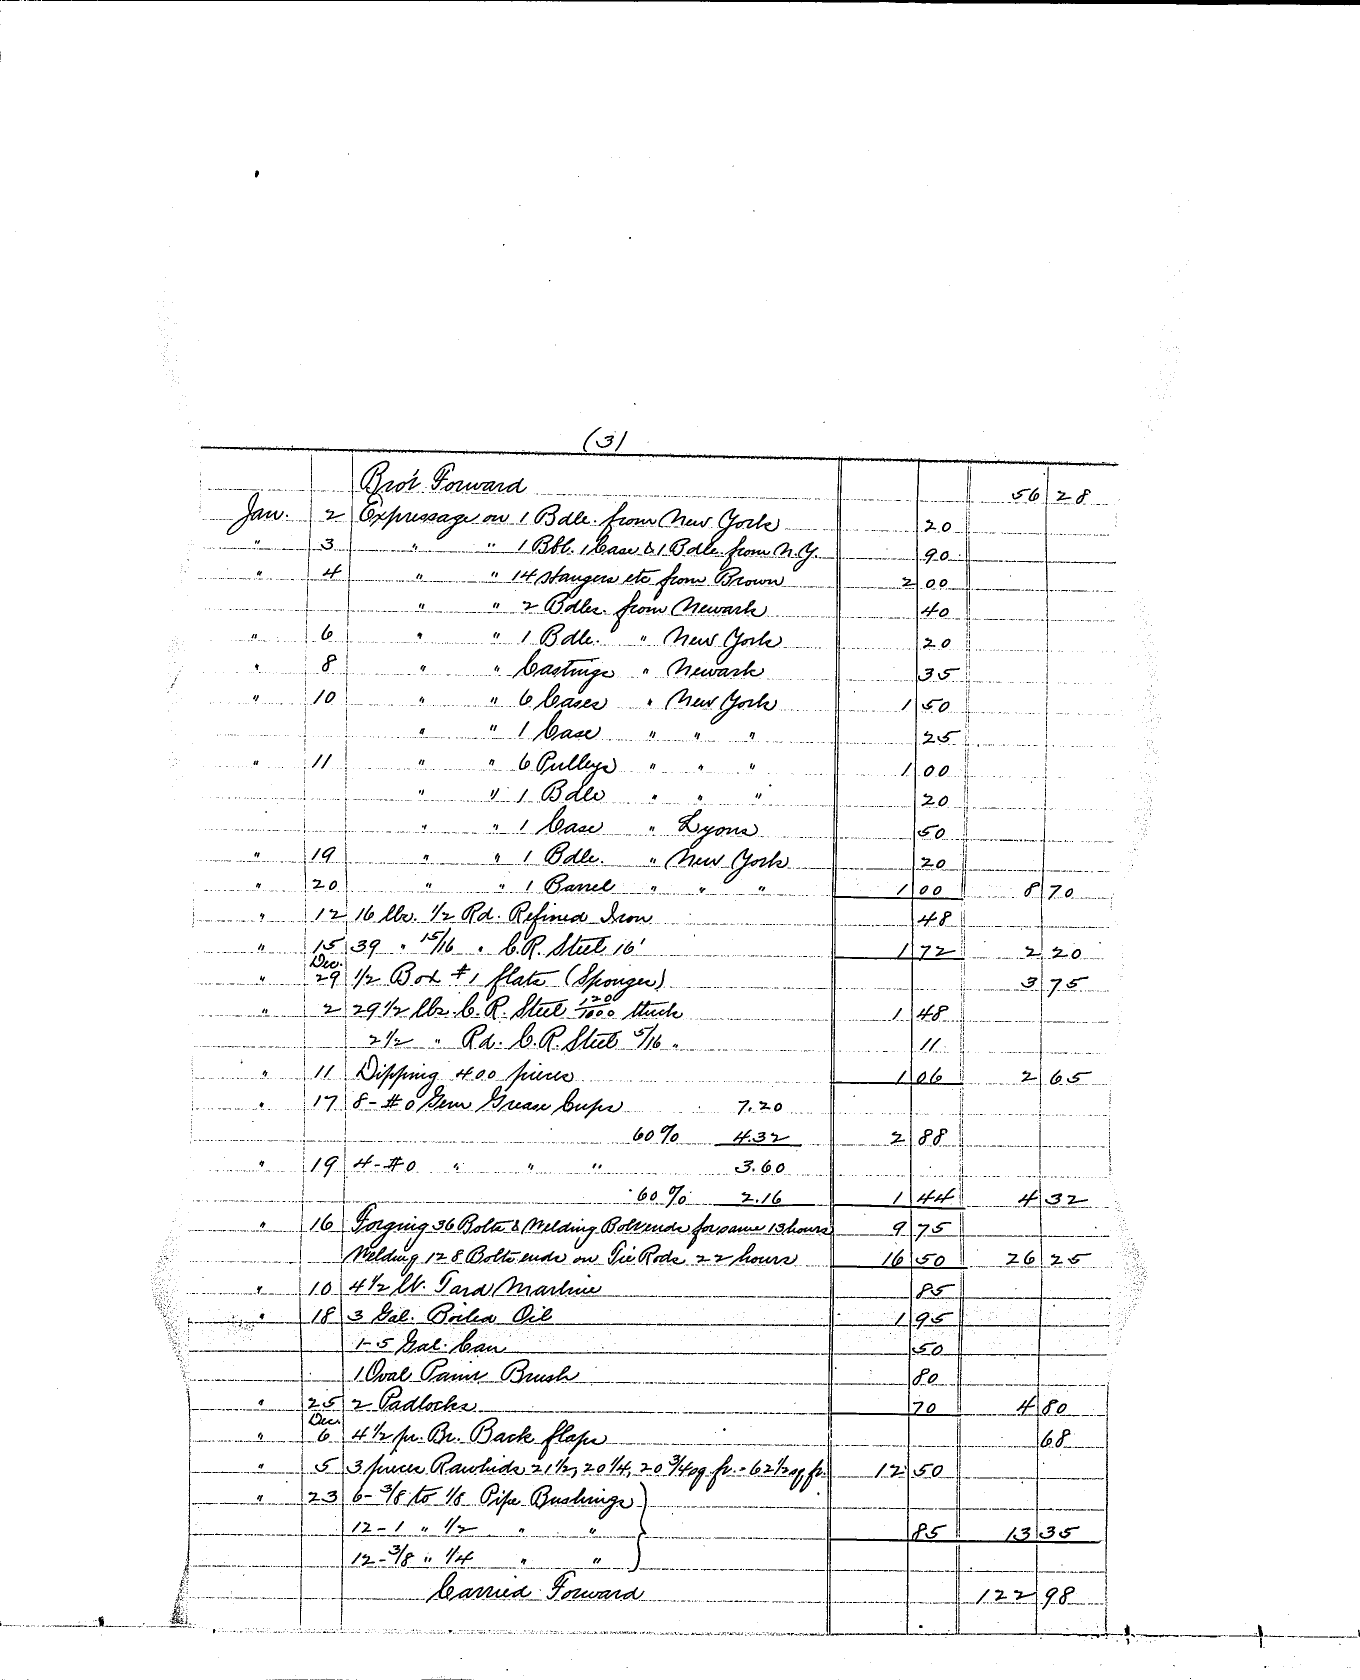 (3)
Bro't Forward 56 28
Jan. 2 Expressage on 1 Bdle. from New York 20
" 3 " " 1 Bbl. 1 Case & 1 Bdle. from N.Y. 90
" 4 " " 14 Hangers etc from Brown 2 00
" " 2 Bdles. from Newark 40
" 6 " " 1 Bdle. " New York 20
" 8 " " Castings " Newark 35
" 10 " " 6 Cases " New York 1 50
" " 1 Case " " " 25
" 11 " " 6 Pulleys " " " 1 00
" " 1 Bdle " " " 20
" " 1 Case " Lyons 50
" 19 " " 1 Bdle. " New York 20
" 20 " " 1 Barrel " " " 1 00 8 70
" 12 16 lbs. 1/2 Rd. Refined Iron 48
" 15 39 " 15/16 " C.R. Steel 16' 1 72 2 20
Dec.
" 29 1/2 Box #1 flats (Sponges) 3 75
" 2 29 1/2 lbs. C.R. Steel 120/1000 thick 1 48
2 1/2 " Rd. C.R. Steel 5/16 " 11
" 11 Dipping 400 pieces 1 06 2 65
" 17 8-#0 Gem Grease Cups 7.20
60% 4.32 2 88
" 19 4-#0 " " " 3.60
60% 2.16 1 44 4 32
" 16 Forging 36 Bolts & Welding Bolt ends for same 13 hours 9 75
Welding 128 Bolt ends on Tie Rods 22 hours 16 50 26 25
" 10 4 1/2 lb. Tard Marline 85
" 18 3 Gal. Boiled Oil 1 95
1-5 Gal. Can 50
1 Oval Paint Brush 80
" 25 2 Padlocks 70 4 80
Dec.
" 6 4 1/2 pr. Br. Back flaps 68
" 5 3 pieces Rawhide 21 1/2, 20 1/4, 20 3/4 sq ft. = 62 1/2 sq ft. 12 50
" 23 6-3/8 to 1/8 Pipe Bushings
12-1 " 1/2 " " 85 13 35
12-3/8 " 1/4 " "
Carried Forward 122 98